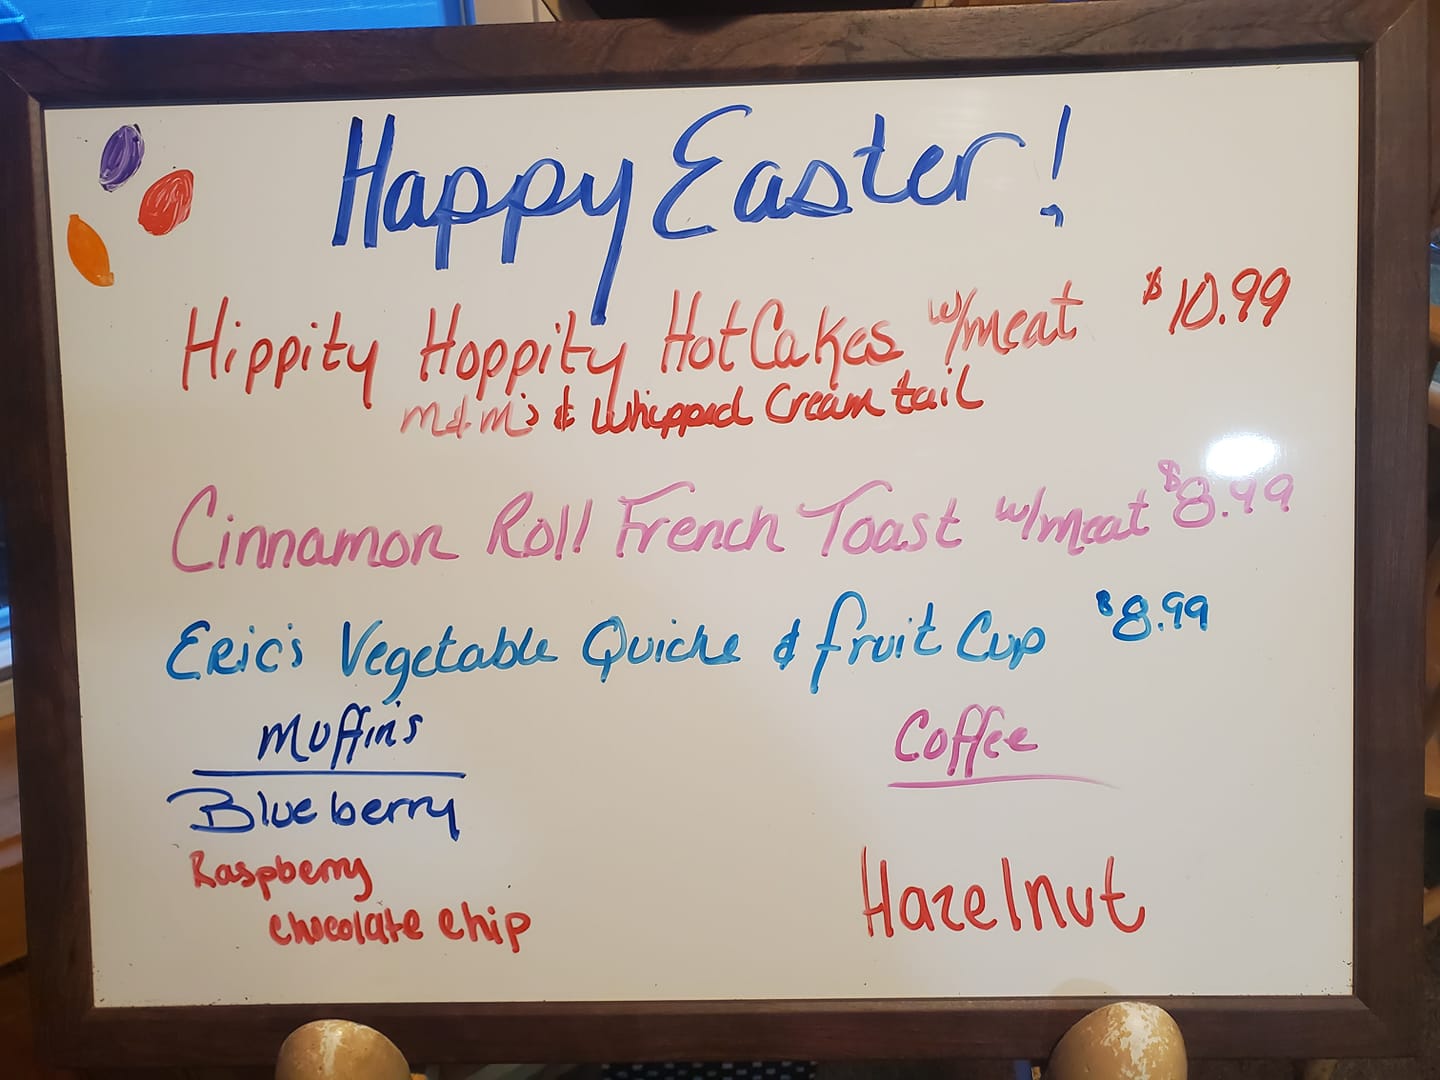 Happy Easter!
Hippity Hoppity HotCakes w/meat $10.99
M&M's & Whipped Cream tail
Cinnamon Roll French Toast w/meat $8.99
Eric's Vegetable Quiche & fruit Cup $8.99
Muffin's
Coffee
Blueberry
Raspberry
chocolate chip
Hazelnut